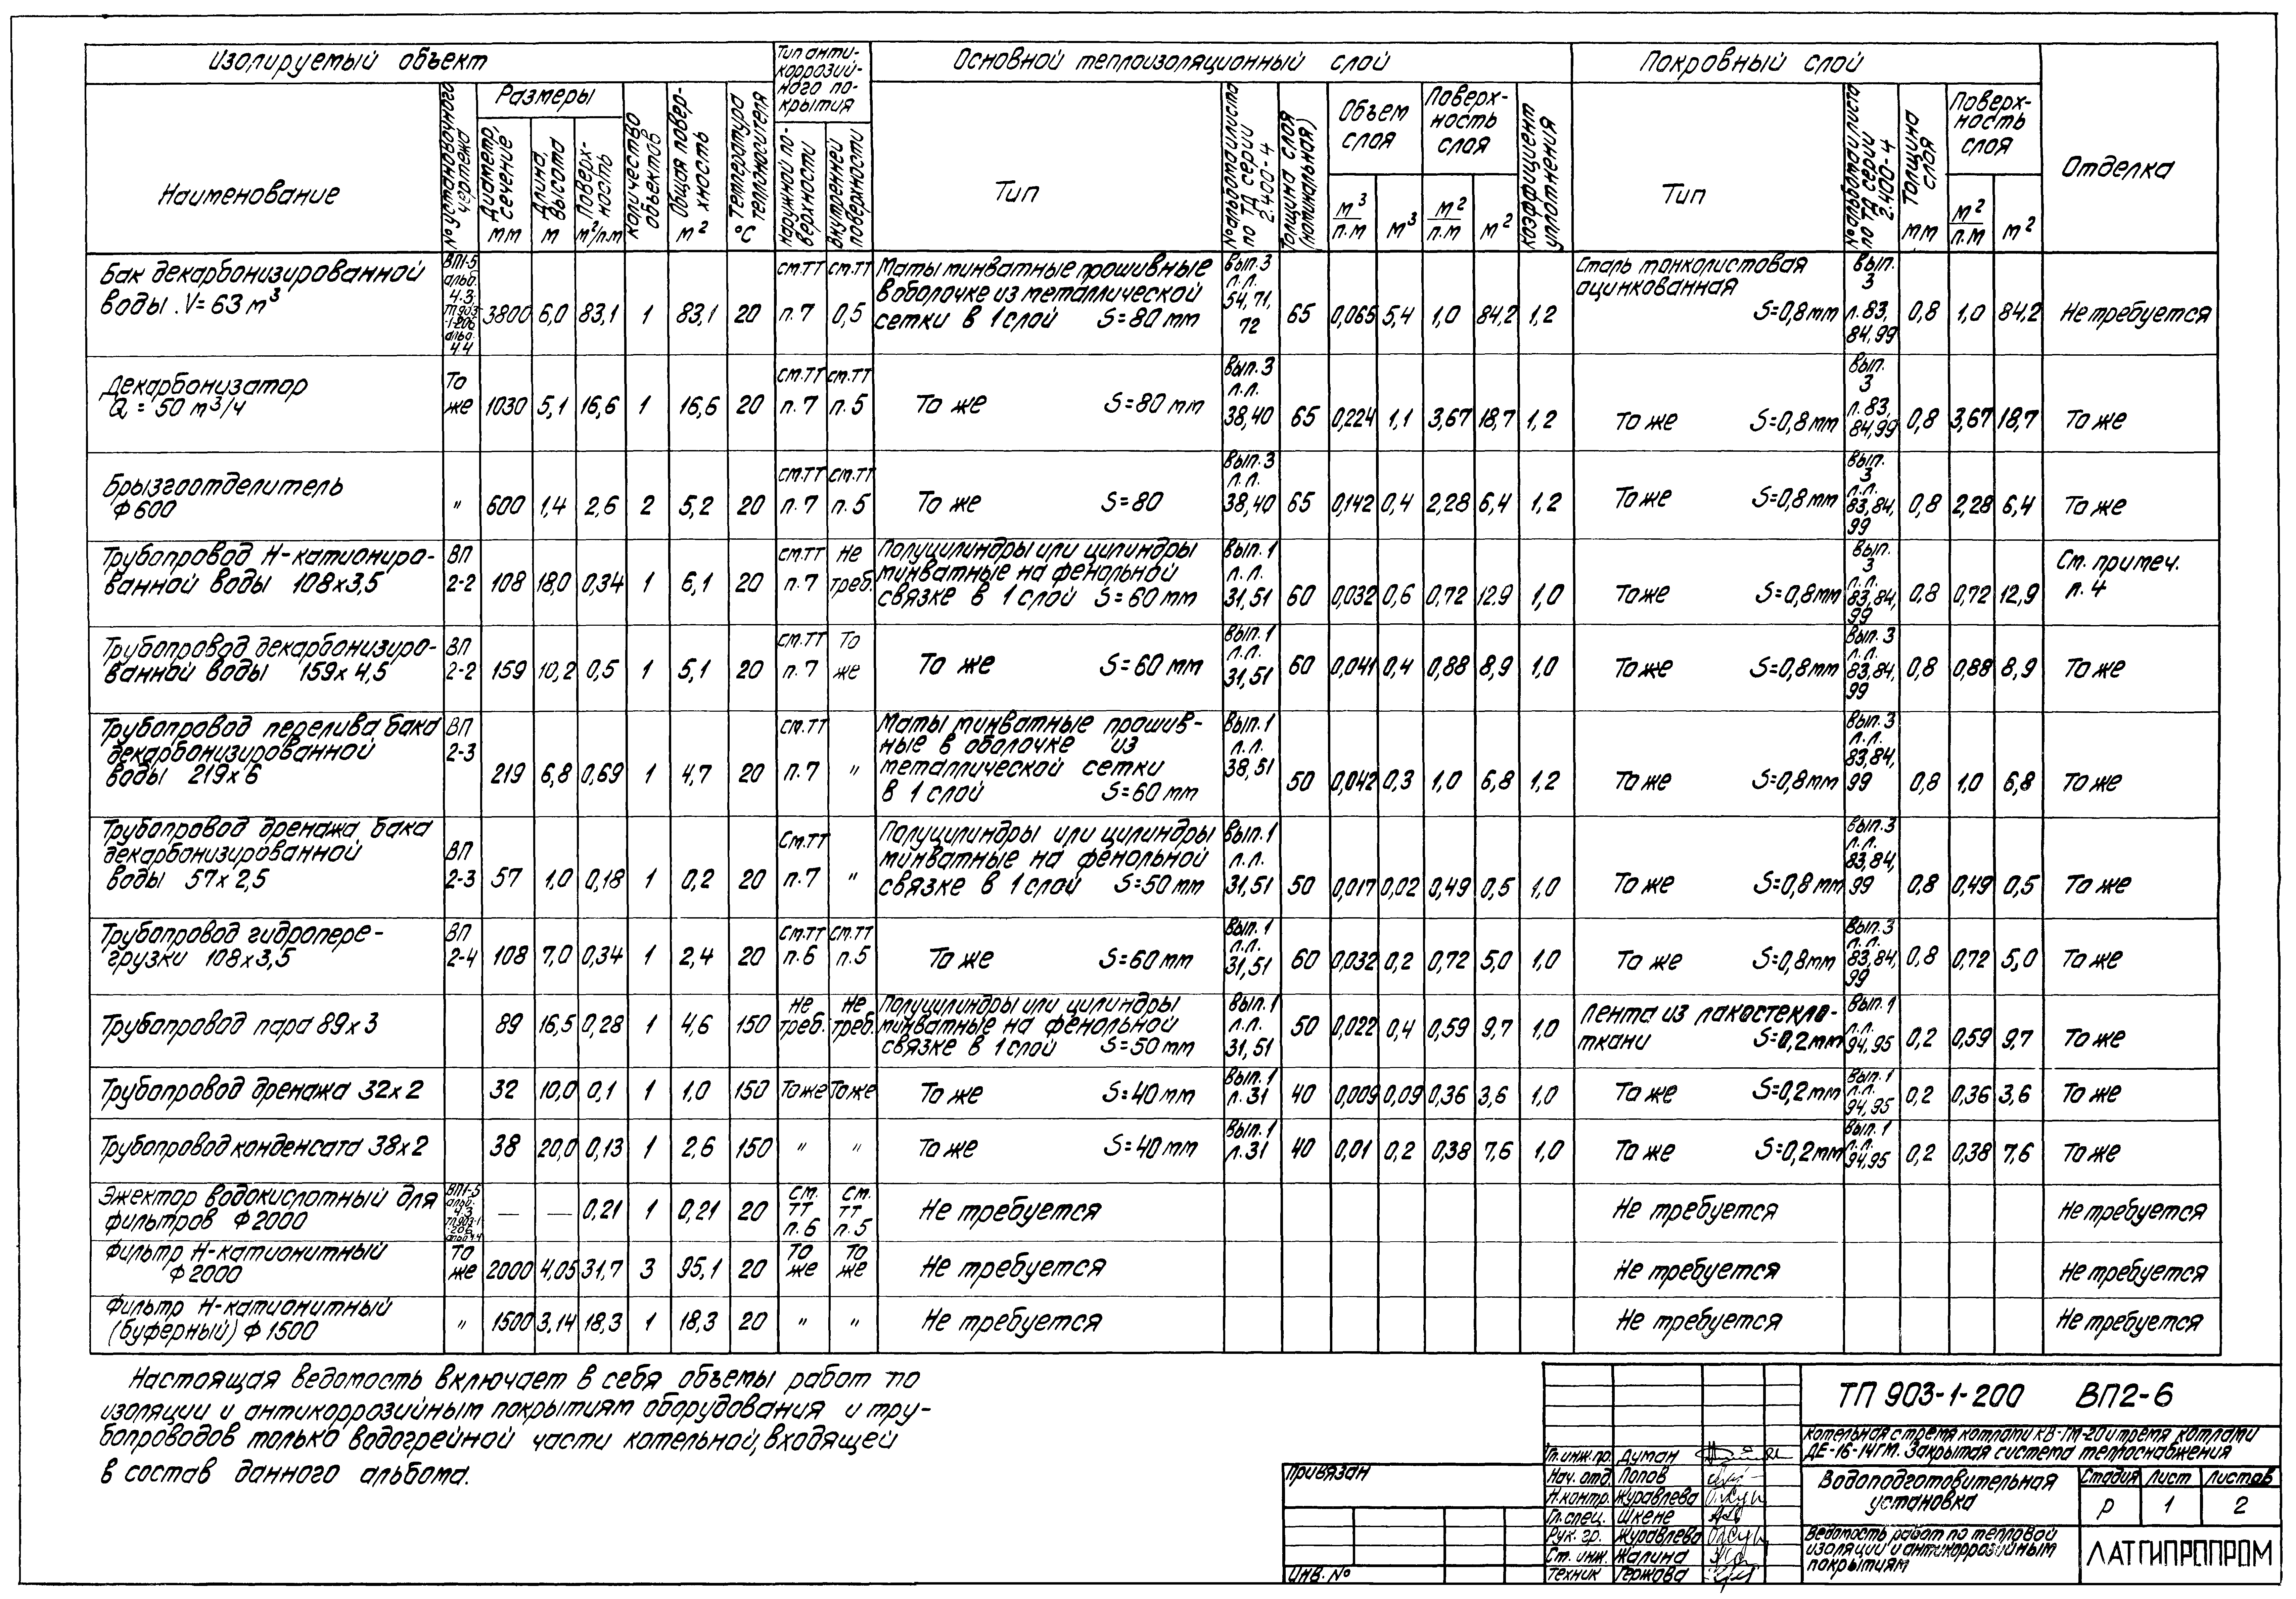 Изолируемый объект
Тип анти-
коррозий-
ного по-
крытия
Основной теплоизоляционный слой
Покровный слой
Отделка
Наименование
№ установочного чертежа
Размеры
Диаметр, сечение
мм
Длина, высота
м
Поверх-ность
м²/п.м
Количество объектов
Общая повер-хность
м²
Температура теплоносителя
°С
наружной по-верхности
внутренней поверхности
Тип
№ альбома и листа по ТД серии 2.400-4
Толщина слоя (номинальная)
Объем слоя
м³/п.м
м³
Поверх-
ность
слоя
м²/п.м
м²
коэффициент уплотнения
Тип
№ альбома и листа по ТД серии 2.400-4
Толщина слоя
мм
Поверх-
ность
слоя
м²/п.м
м²
Бак декарбонизированной воды. V=63 м³ ВП1-5 альб. 4.3 ТП903-1-206 альб. 4.4 3800 6,0 83,1 1 83,1 20 см.ТТ п.7 см.ТТ 0,5 Маты минватные прошивные в оболочке из металлической сетки в 1 слой S=80 мм Вып.3 л.л. 54,71,72 65 0,065 5,4 1,0 84,2 1,2 Сталь тонколистовая оцинкованная S=0,8 мм Вып. 3 л.83, 84,99 0,8 1,0 84,2 Не требуется
Декарбонизатор Q = 50 м³/ч То же 1030 5,1 16,6 1 16,6 20 см.ТТ п.7 см.ТТ п.5 То же S=80 мм Вып.3 л.л. 38,40 65 0,224 1,1 3,67 18,7 1,2 То же S=0,8 мм Вып. 3 л.83, 84,99 0,8 3,67 18,7 То же
Брызгоотделитель Ф600 " 600 1,4 2,6 2 5,2 20 см.ТТ п.7 см.ТТ п.5 То же S=80 Вып.3 л.л. 38,40 65 0,142 0,4 2,28 6,4 1,2 То же S=0,8 мм Вып. 3 л.л. 83,84,99 0,8 2,28 6,4 То же
Трубопровод Н-катионированной воды 108х3,5 ВП 2-2 108 18,0 0,34 1 6,1 20 см.ТТ п.7 Не треб. Полуцилиндры или цилиндры минватные на фенольной связке в 1 слой S=60 мм Вып.1 л.л. 31,51 60 0,032 0,6 0,72 12.9 1,0 То же S=0,8 мм Вып. 3 л.л. 83,84,99 0,8 0,72 12,9 См. примеч. п.4
Трубопровод декарбонизированной воды 159х4,5 ВП 2-2 159 10,2 0,5 1 5,1 20 см.ТТ п.7 То же То же S=60 мм Вып.1 л.л. 31,51 60 0,041 0,4 0,88 8,9 1,0 То же S=0,8 мм Вып.3 л.л. 83,84,99 0,8 0,88 8,9 То же
Трубопровод перелива бака декарбонизированной воды 219х6 ВП 2-3 219 6,8 0,69 1 4,7 20 см.ТТ п.7 " Маты минватные прошивные в оболочке из металлической сетки в 1 слой S=60 мм Вып.1 л.л. 38,51 50 0,042 0,3 1,0 6,8 1,2 То же S=0,8 мм Вып.3 л.л. 83,84,99 0,8 1,0 6,8 То же
Трубопровод дренажа бака декарбонизированной воды 57х2,5 ВП 2-3 57 1,0 0,18 1 0,2 20 См.ТТ п.7 " Полуцилиндры или цилиндры минватные на фенольной связке в 1 слой S=50 мм Вып.1 л.л. 31,51 50 0,017 0,02 0,49 0,5 1,0 То же S=0,8 мм Вып.3 л.л. 83,84,99 0,8 0,49 0,5 То же
Трубопровод гидроперегрузки 108х3,5 ВП 2-4 108 7,0 0,34 1 2,4 20 См.ТТ п.6 см.ТТ п.5 То же S=60 мм Вып.1 л.л. 31,51 60 0,032 0,2 0,72 5,0 1,0 То же S=0,8 мм Вып.3 л.л. 83,84,99 0,8 0,72 5,0 То же
Трубопровод пара 89х3 89 16,5 0,28 1 4,6 150 Не треб. Не треб. Полуцилиндры или цилиндры минватные на фенольной связке в 1 слой S=50 мм Вып.1 л.л. 31,51 50 0,022 0,4 0,59 9,7 1,0 Лента из лакостеклоткани S=0,2 мм Вып.1 л.л. 94,95 0,2 0,59 9,7 То же
Трубопровод дренажа 32х2 32 10,0 0,1 1 1,0 150 То же То же То же S=40 мм Вып.1 л.31 40 0,009 0,09 0,36 3,6 1,0 То же S=0,2 мм Вып.1 л.л. 94,95 0,2 0,36 3,6 То же
Трубопровод конденсата 38х2 38 20,0 0,13 1 2,6 150 " " То же S=40 мм Вып.1 л.31 40 0,01 0,2 0,38 7,6 1,0 То же S=0,2 мм Вып.1 л.л. 94,95 0,2 0,38 7,6 То же
Эжектор водокислотный для фильтров Ф2000 ВП1-5 альб. 4.3 ТП903-1-206 альб 4.4 — — 0,21 1 0,21 20 см. ТТ п.6 см. ТТ п.5 Не требуется Не требуется Не требуется
Фильтр Н-катионитный Ф2000 То же 2000 4,05 31,7 3 95,1 20 То же То же Не требуется Не требуется Не требуется
Фильтр Н-катионитный (буферный) Ф1500 " 1500 3,14 18,3 1 18,3 20 " " Не требуется Не требуется Не требуется
Настоящая ведомость включает в себя объемы работ по
изоляции и антикоррозийным покрытиям оборудования и тру-
бопроводов только водогрейной части котельной, входящей
в состав данного альбома.
Привязан
Инв. №
Гл.инж.пр. Думан
Нач. отд. Попов
Н.контр. Журавлева
Гл.спец. Шкене
Рук. гр. Журавлева
Ст. инж. Жалина
Техник Гержова
ТП 903-1-200 ВП2-6
Котельная с тремя котлами КВ-ГМ-20 и тремя котлами
ДЕ-16-14ГМ. Закрытая система теплоснабжения
Водоподготовительная
установка
Стадия Лист Листов
Р 1 2
Ведомость работ по тепловой
изоляции и антикоррозийным
покрытиям
ЛАТГИПРОПРОМ